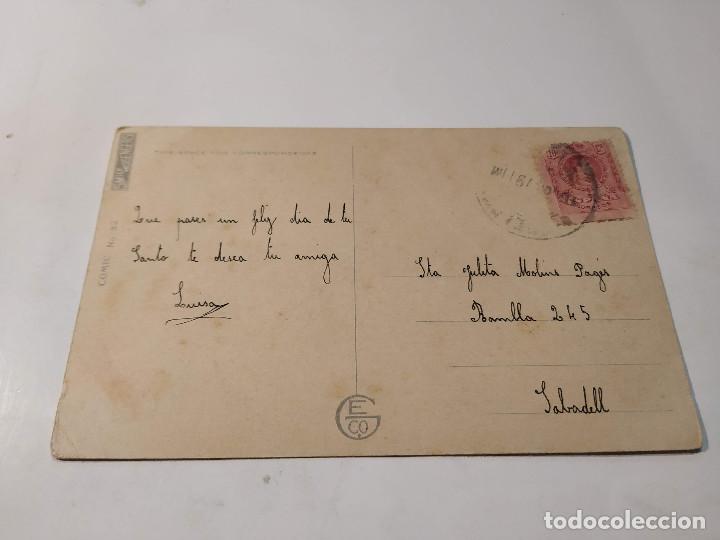 THIS SPACE FOR CORRESPONDENCE
COMIC No 32
Que pases un feliz dia de tu
Santo te desea tu amiga
Luisa
Sta Julita Molins Pagés
Rambla 245
Sabadell
E
G
CO
todocoleccion
todocoleccion.net